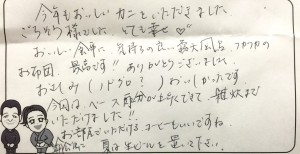 今年もおいしいカニをいただきました
ごちそう様でした とても幸せ♡
おいしい食事に 気持ちの良い露天風呂、フカフカの
お布団、最高です!! ありがとうございました
おさしみ(ノドグロ?)おいしかったです
今回は、ペース配分が上手にできて、雑炊まで
いただけました!!
お部屋でいただけるコーヒーもいいですね
夏は生ビールを置いて下さい。